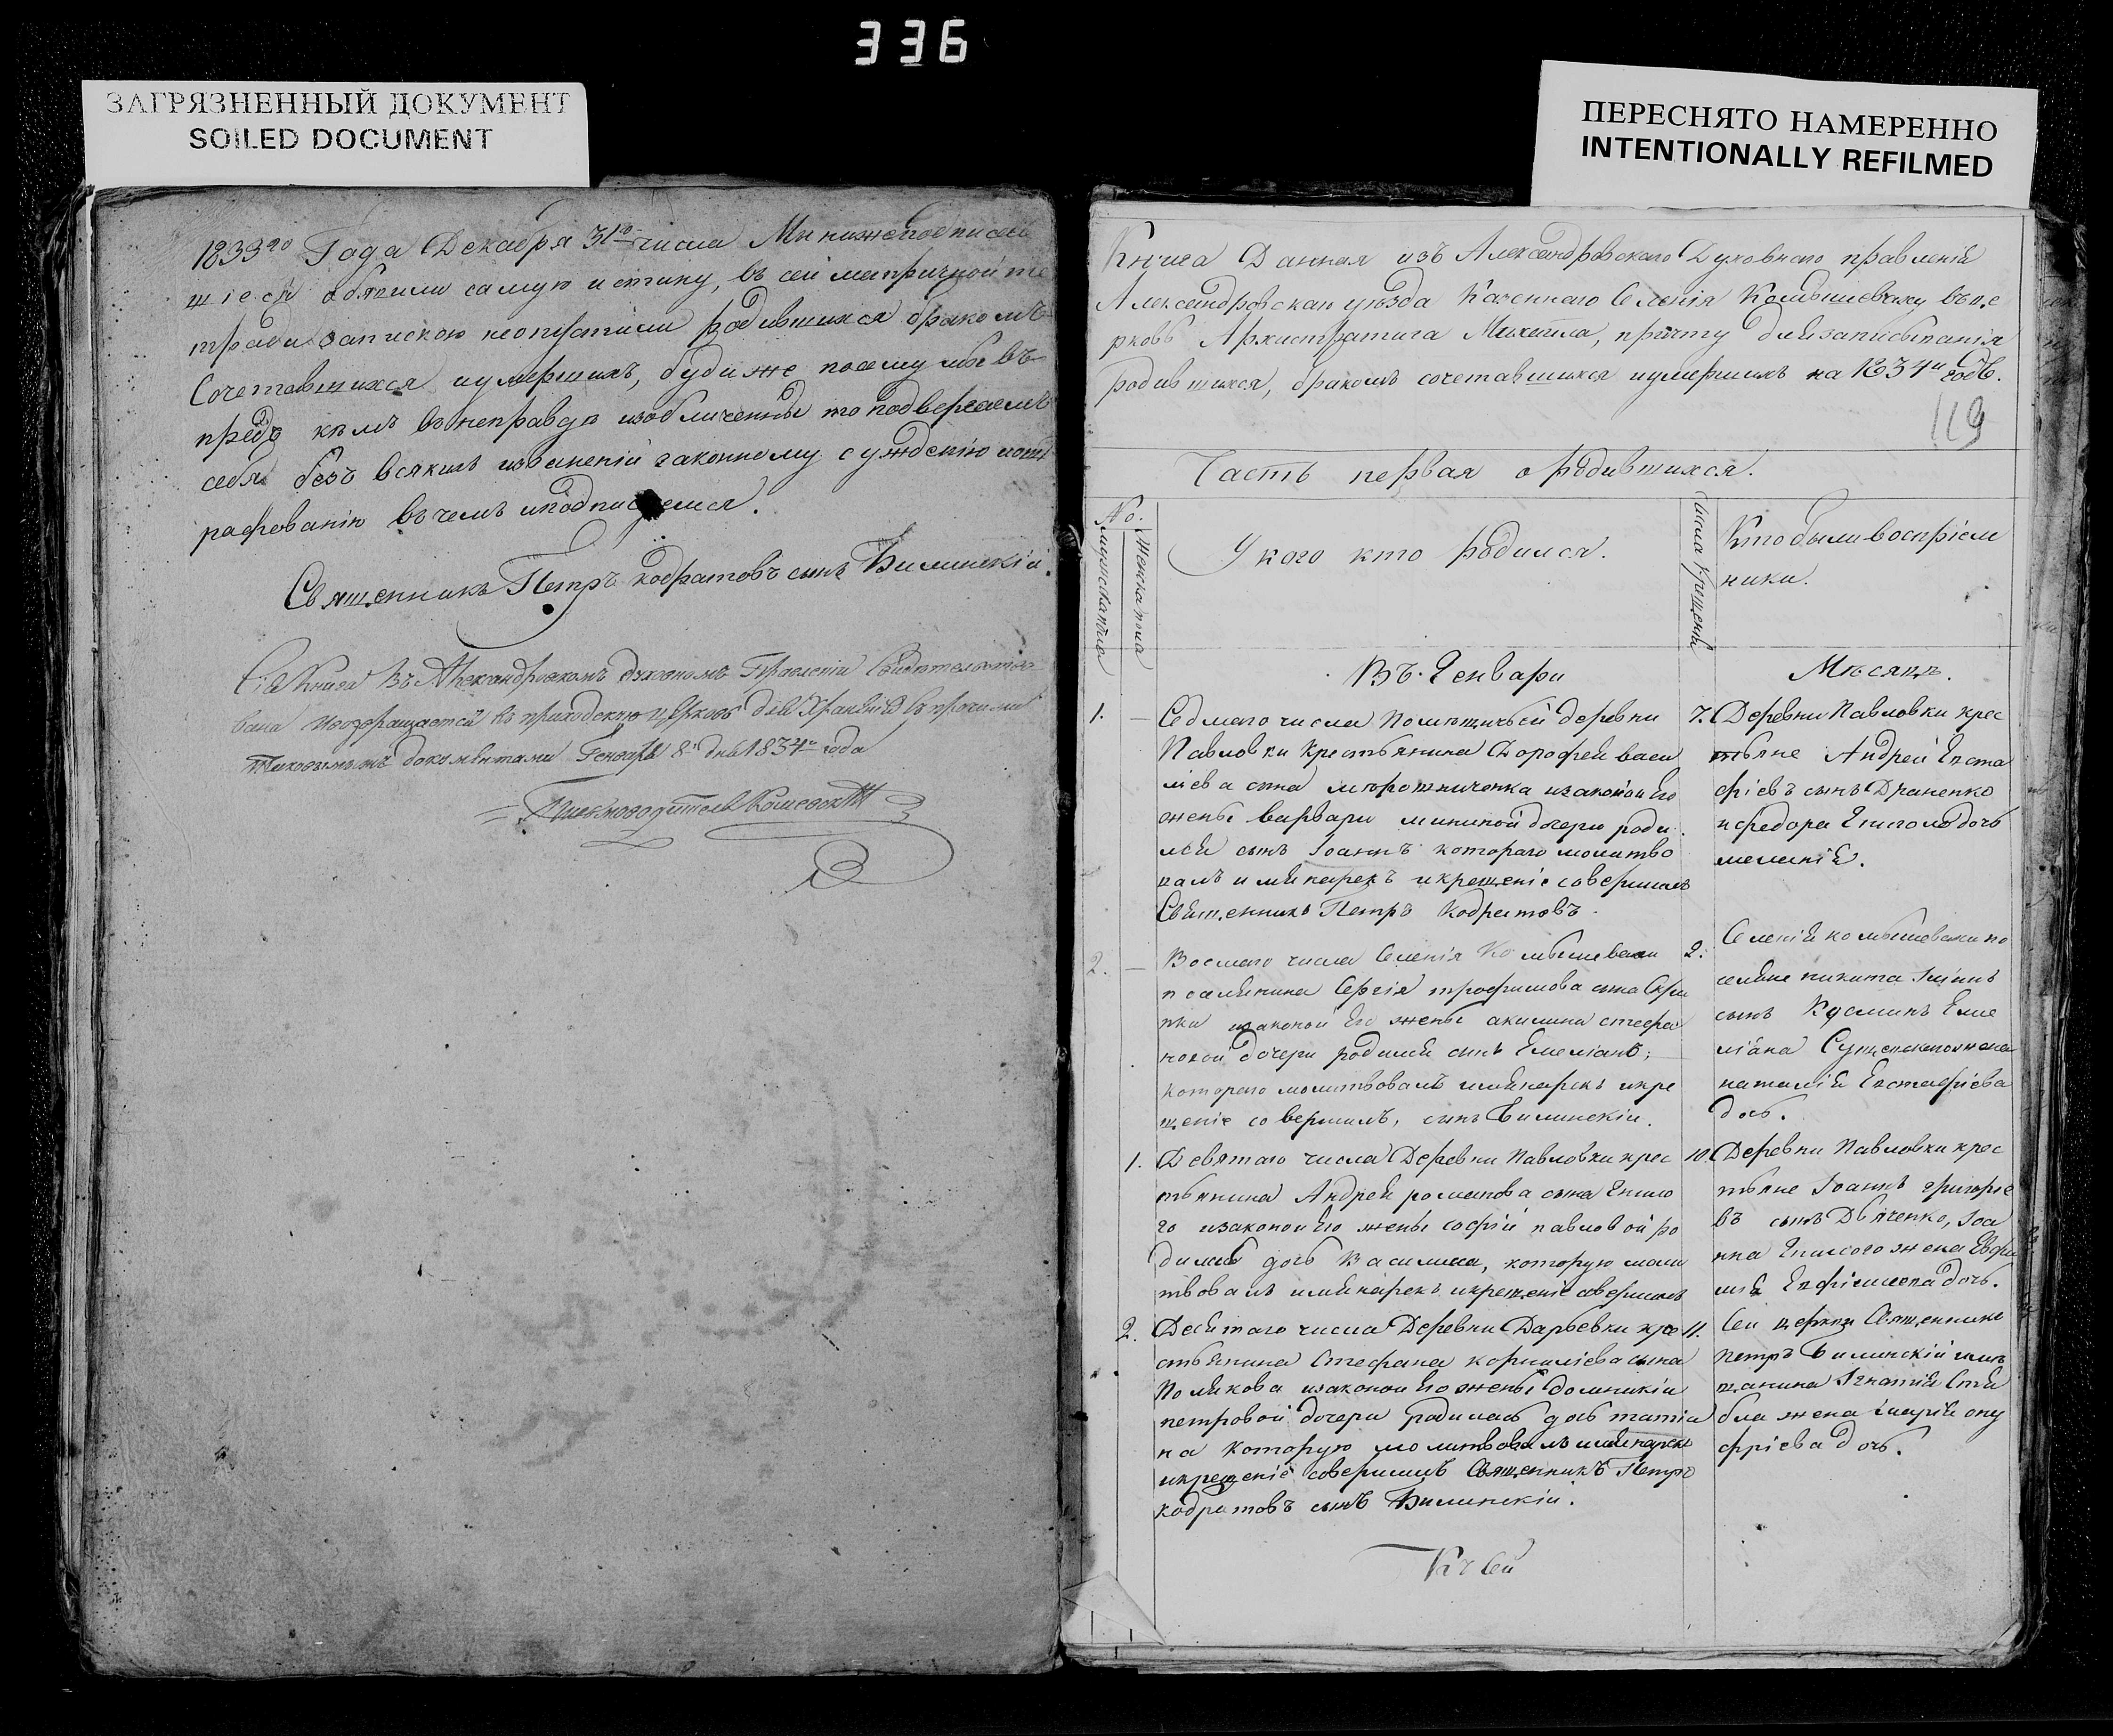 336
ЗАГРЯЗНЕННЫЙ ДОКУМЕНТ
SOILED DOCUMENT
ПЕРЕСНЯТО НАМЕРЕННО
INTENTIONALLY REFILMED
1833го Года Декабря 31го числа Мы нижеподписав
шіеся объявили самую истину, въ сей метричной те
тради запискою неопустили родившихся бракомъ
Сочетавшихся иумершихъ, буди же посему мы въ
предъ кемъ въ неправде изобличенны то подвергаемъ
себя безъ всякихъ извиненій законному сужденію иошт
рафованію въ чемъ иподписуемся.
Священникъ Петръ кодратовъ сынъ Билинскій.
Сія Книга Въ Александровскомъ духовномъ Правленіи Свидетельство
вана ивозвращается въ приходскую церковь для Храненія съ прочими
таковыми документами Генваря 8 дня 1834 года
Книга Данная изъ Александровскаго Духовнаго правленія
Александровскаго уезда Казеннаго Селенія Комышевахи, въ це
рковь Архистратига Михаила, причту для записыванія
Родившихся, бракомъ сочетавшихся иумершихъ на 1834й годъ.
119
Часть первая о родившихся.
No.
Мужска пола
Женска пола
У кого кто родился.
Числа крещенія
Кто были восприем
ники.
Въ Генвари
Месяце.
1. Седмаго числа Помещичьей деревни
Павловки Крестьянина Дорофея васи
лиева сына мирошниченка изаконои его
жены варвары мининой дочери роди
лся сынъ Іоаннъ котораго молитво
валъ и имя нарекъ икрещеніе совершалъ
Священникъ Петръ Кодратовъ.
7. Деревни Павловки крес
тьяне Андрей Евста
фіевъ сынъ Драненко
ифедора дочь
2. Восмаго числа Селенія Комышевахи
поселянина Сергія трофимова сына Скри
пки изаконои его жены акилины стефа
новой дочери родился сынъ Емеліанъ;
котораго молитвовалъ иимя нарекъ икре
щеніе совершилъ, сынъ Билинскіи.
2. Селенія комышевахи по
селяне никита
сынъ Кусминъ Еме
ліана жена
наталія Евстафіева
дочь.
1. Девятаго числа Деревни Павловки крес
тьянина Андрея романова сына
го изаконои его жены софіи павловой ро
дилась дочь Василиса, которую моли
твовалъ иимя нарекъ икрещеніе совершилъ
10. Деревни Павловки крес
тьяне Іоаннъ григорие
въ сынъ Дяченко, Іоа
нна жена
Евфимова дочь.
2. Десятаго числа Деревни Дарьевки кре
стьянина Стефана корниліева сына
Полякова изаконои его жены домникіи
петровой дочери родилась дочь татіа
на которую молитвовалъ иимя нарекъ
икрещеніе совершилъ Священникъ Петръ
кодратовъ сынъ Билинскіи.
11. Сеи церкви Священникъ
петръ Билинскіи имъ
щанина Игнатія
жена ону
фріева дочь.